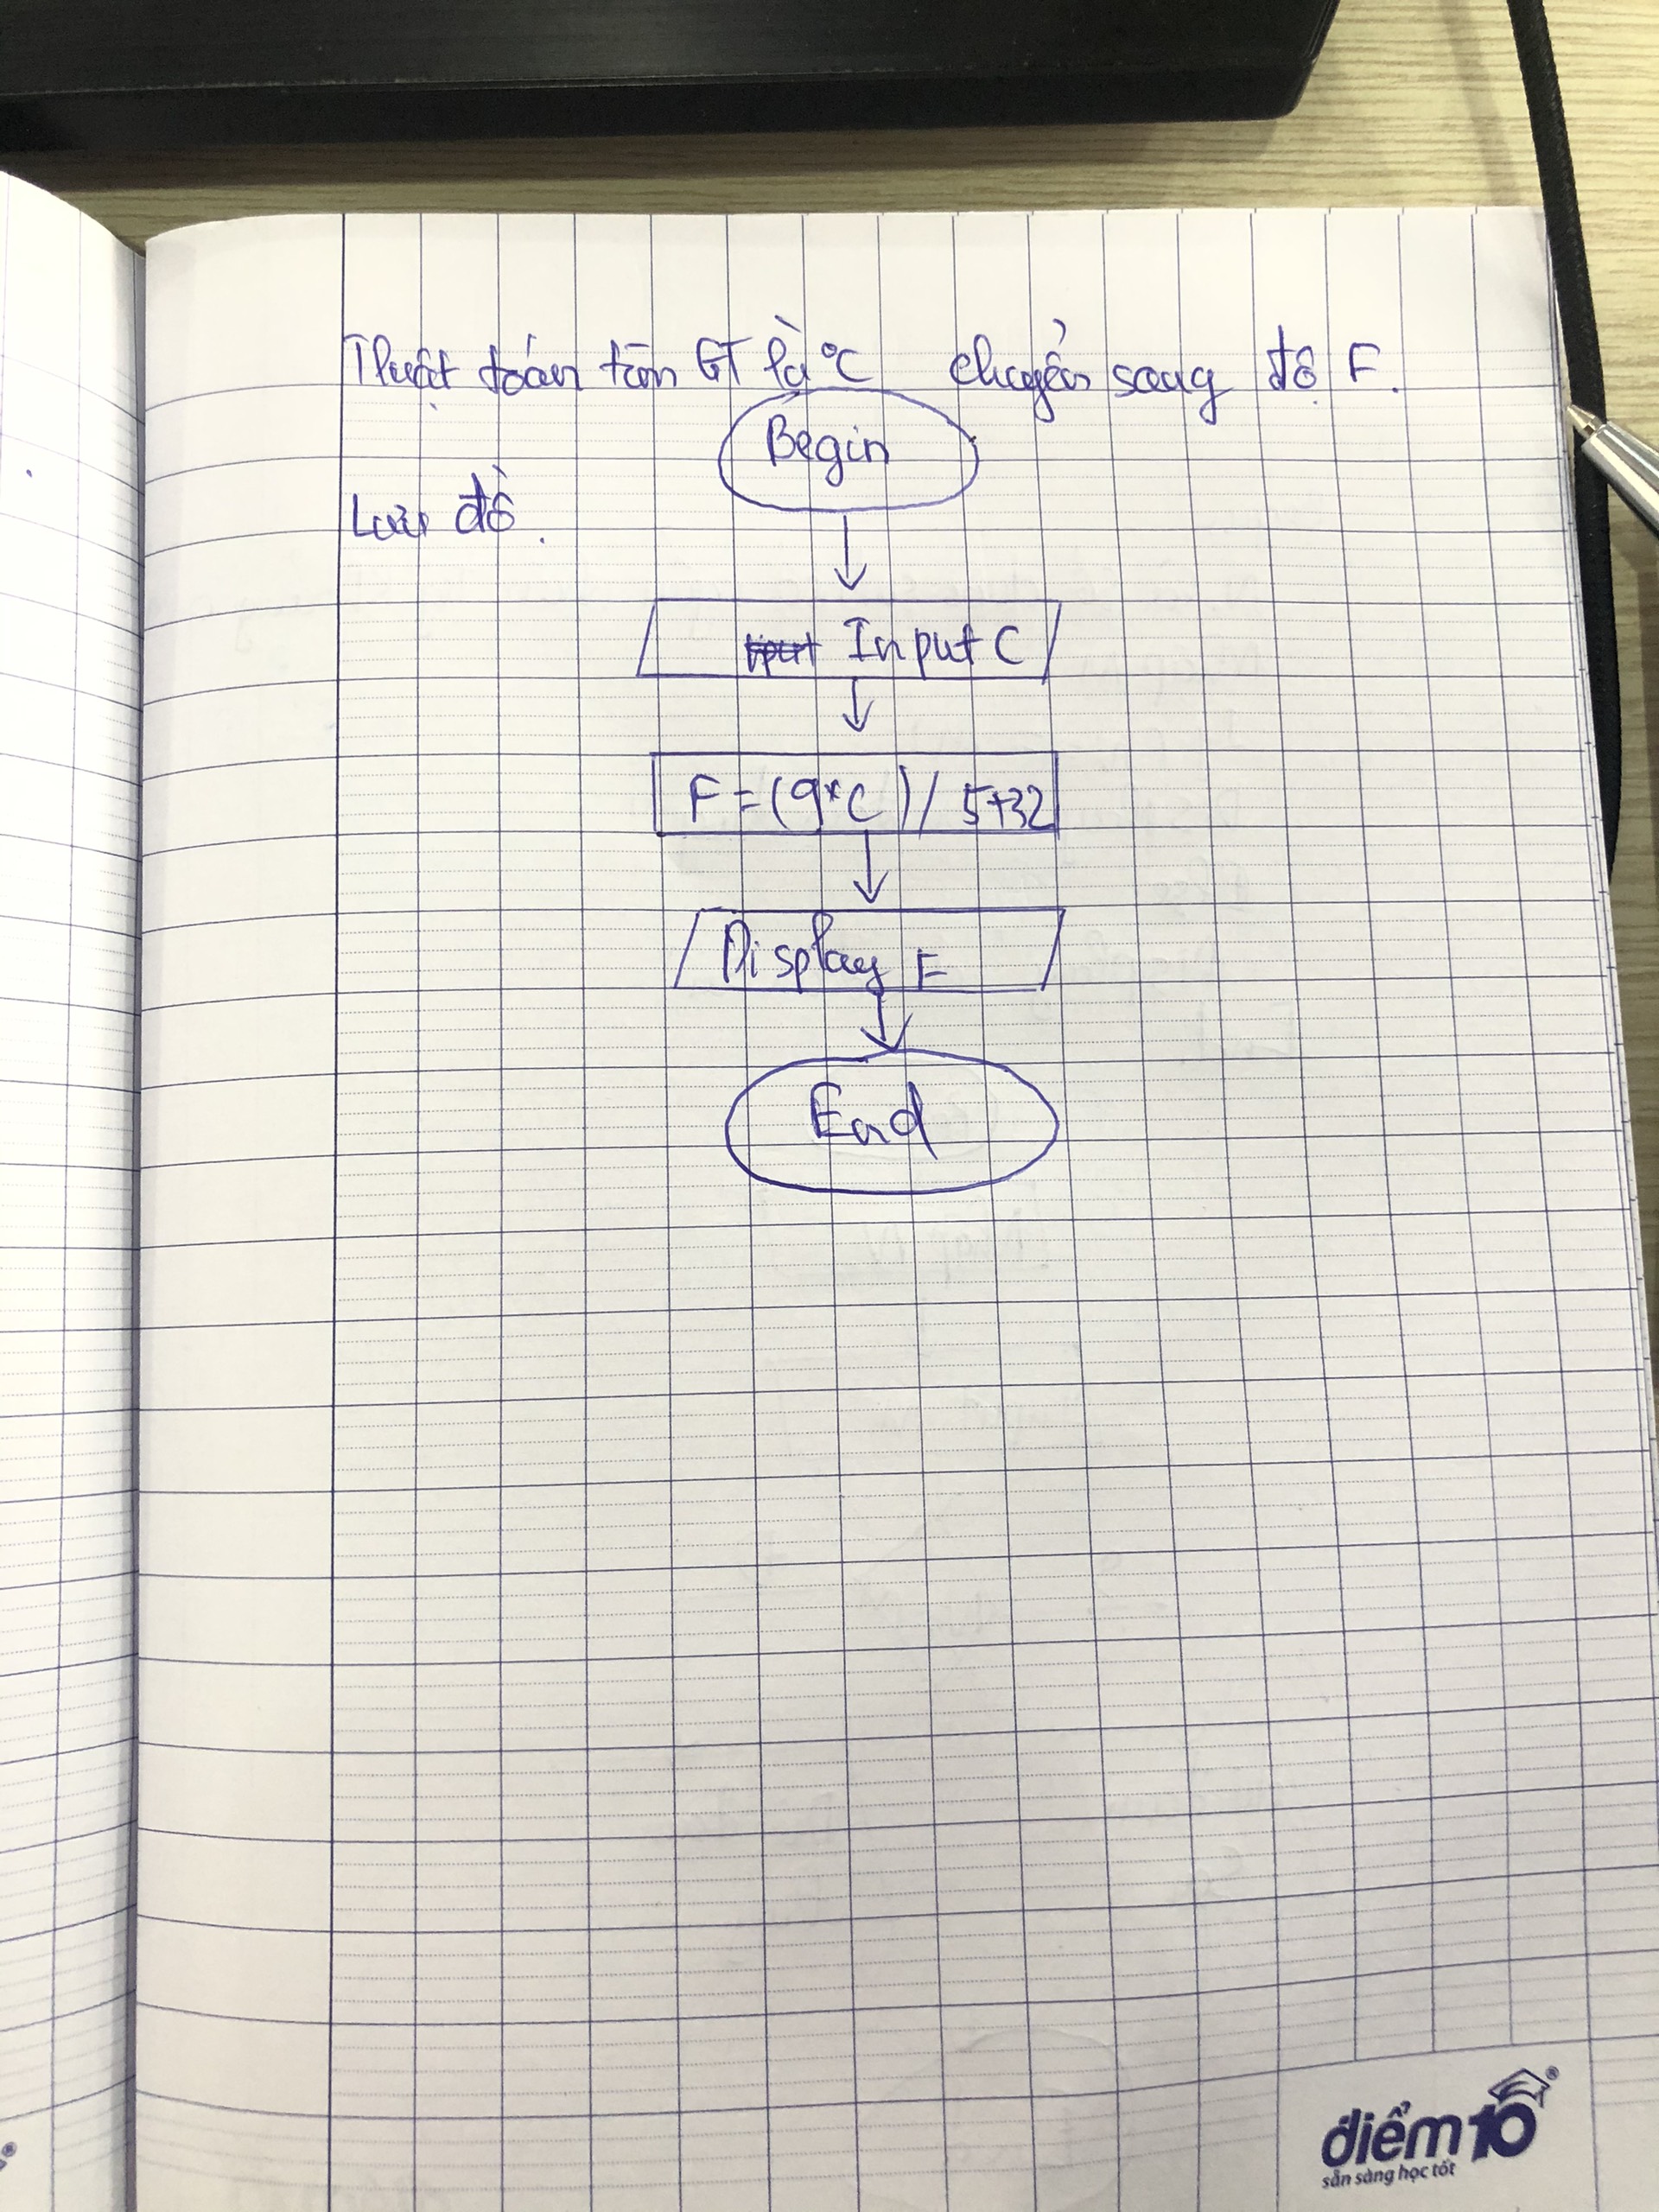 Thuật toán tìm GT là °C chuyển sang độ F.
Begin
Lưu đồ.
Input C
F = (9*C) / 5+32
Display F
End
điểm10
sẵn sàng học tốt